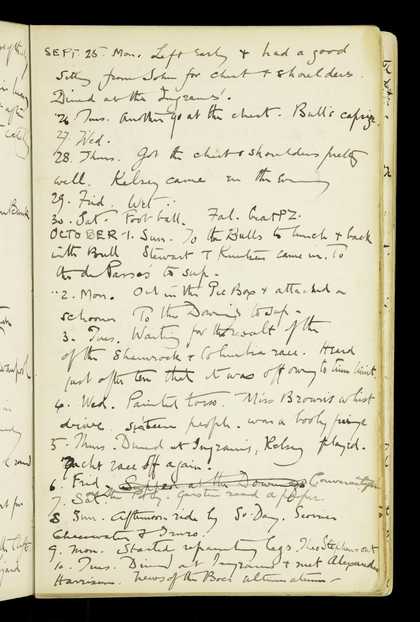 SEPT 25 Mon. Left early & had a good
sitting from John for chest & shoulders.
Dined at the Ingrams'.
26 Tues. Another go at the chest. Bull's
27 Wed.
28. Thurs. Got the chest & shoulders pretty
well. Kelsey came in the evening
29. Frid. Wet.
30. Sat. Foot ball. Fal.
OCTOBER 1. Sun. To the Bulls to lunch & back
with Bull Stewart & came in. To
the de Passes to sup.
2. Mon. Out in the Pie Box & attacked a
schooner To the Downings to sup.
3. Tues. Waiting for the result of the
of the Shamrock & Columbia race. Heard
just after ten that it was off owing to time limit.
4. Wed. Painted torso. Miss Brown's whist
drive sixteen people. Won a booby prize
5. Thurs. Dined at Ingrams, Kelsey played.
Yacht race off again.
6. Frid. Supped at the Downings
7. Sat. the Poly. read a paper.
8 Sun. Afternoon ride by
Chacewater & Truro.
9. Mon. Started repainting legs.
10. Tues. Dined at Ingrams & met Alexander
Harrison. News of the Boer ultimatum